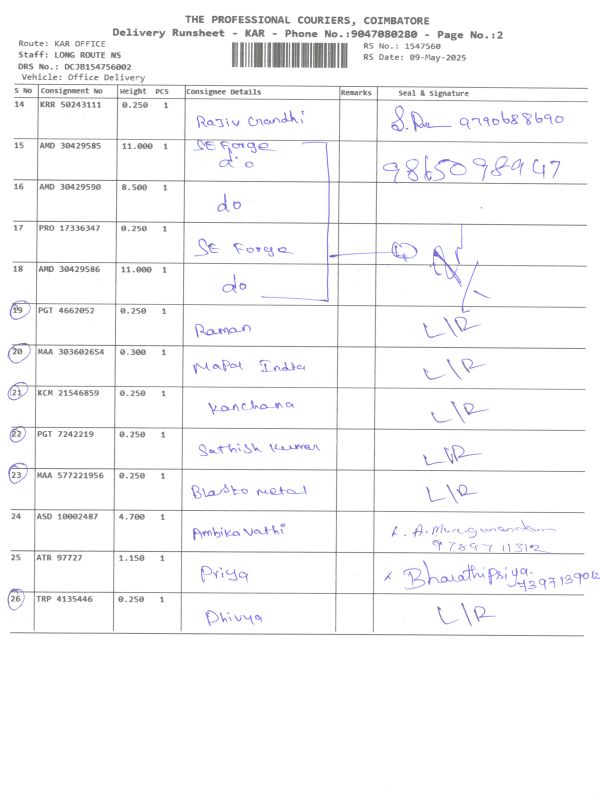 THE PROFESSIONAL COURIERS, COIMBATORE
Delivery Runsheet - KAR - Phone No.:9047080280 - Page No.:2
Route: KAR OFFICE
RS No.: 1547560
Staff: LONG ROUTE NS
RS Date: 09-May-2025
DRS No.: DCJB154756002
Vehicle: Office Delivery
S No Consignment No Weight PCS Consignee Details Remarks Seal & Signature
14 KRR 50243111 0.250 1 Rajiv Grandhi 9790688690
15 AMD 30429585 11.000 1 SE Forge
do 9865098947
16 AMD 30429590 8.500 1 do
17 PRO 17336347 0.250 1 SE Forge
18 AMD 30429586 11.000 1 do
19 PGT 4662052 0.250 1 Raman L/R
20 MAA 303602654 0.300 1 Mapal India L/R
21 KCM 21546859 0.250 1 Kanchana L/R
22 PGT 7242219 0.250 1 Sathish Kumar L/R
23 MAA 577221956 0.250 1 Blasto metal L/R
24 ASD 10002487 4.700 1 Ambika vathi A. Muruganandam
9789711312
25 ATR 97727 1.150 1 Priya Bharathipriya.
7397139012
26 TRP 4135446 0.250 1 Dhivya L/R